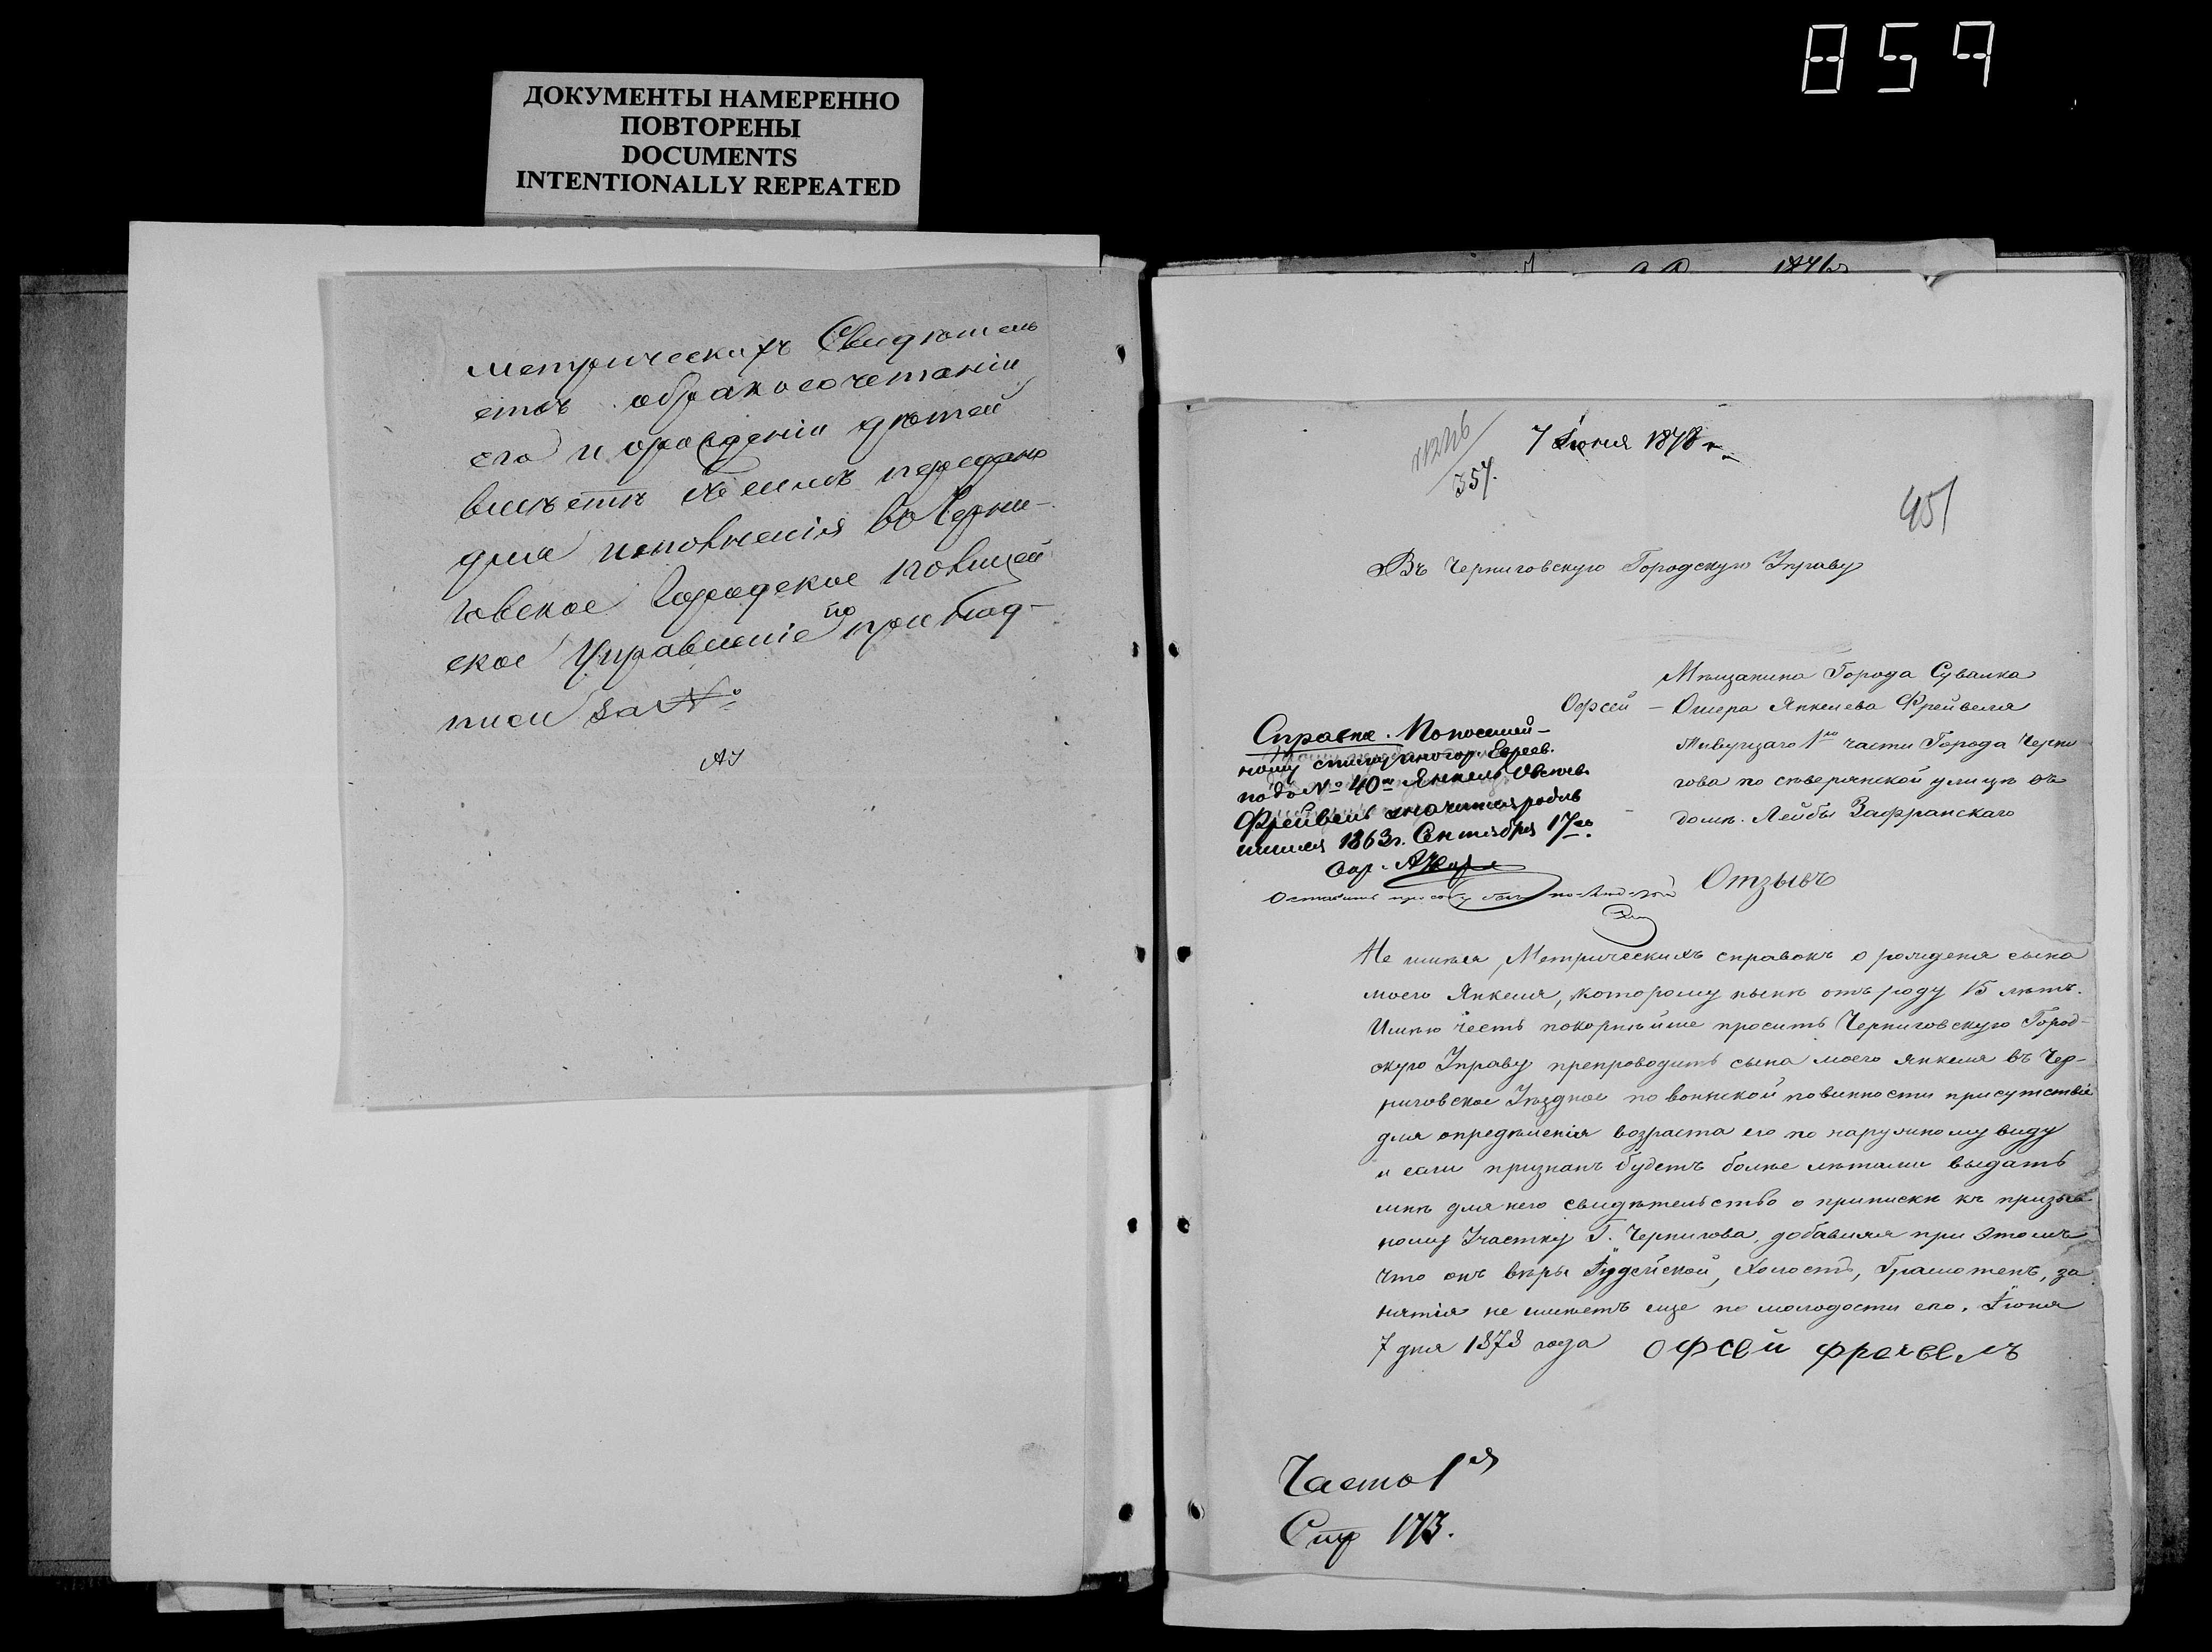 859
ДОКУМЕНТЫ НАМЕРЕННО
ПОВТОРЕНЫ
DOCUMENTS
INTENTIONALLY REPEATED
метрическихъ Свидѣтель
ствъ обракосочетаніи
его и орожденіи дѣтей
вмѣстѣ съ симъ передано
для исполненія въ Черни-
говское Городское Полицей
ское Управленіе по при над-
писи за №
7 Іюня 1878 г.
357.
451
Въ Черниговскую Городскую Управу
Мѣщанина Города Сувалка
Офсей - Ошера Янкелева Фрейвеля
Живущаго 1й части Города Черни
гова по сѣверянской улицѣ въ
домѣ Лейбы Зафранскаго
Справка. Попосемей-
ному списку иногор. Евреев.
подъ № 40м Янкель Овсѣев.
Фрейвель значится родив
шимся 1863 г. Сентября 17го.
Отзывъ
Не имѣя, Метрическихъ справокъ о рожденя сына
моего Янкеля, которому нынѣ отъ роду 15 лѣтъ.
Имѣю честь покорнѣйше просить Черниговскую Город-
скую Управу препроводить сына моего Янкеля въ Чер-
ниговское Уѣздное по воинской повинности присутствіе
для опредѣленія возраста его по наружному виду
и если признанъ будетъ болѣе лѣтами выдать
мнѣ для него свидѣтельство о приписки къ призыв
ному Участку Г. Чернигова, добавляя при этомъ
что онъ вѣры Іудейской, Холостъ, Грамотенъ, за
нятія не имѣетъ еще по молодости его. Іюня
7 дня 1878 года Офсей Фрейвелъ
Часть 1я
Стр 173.